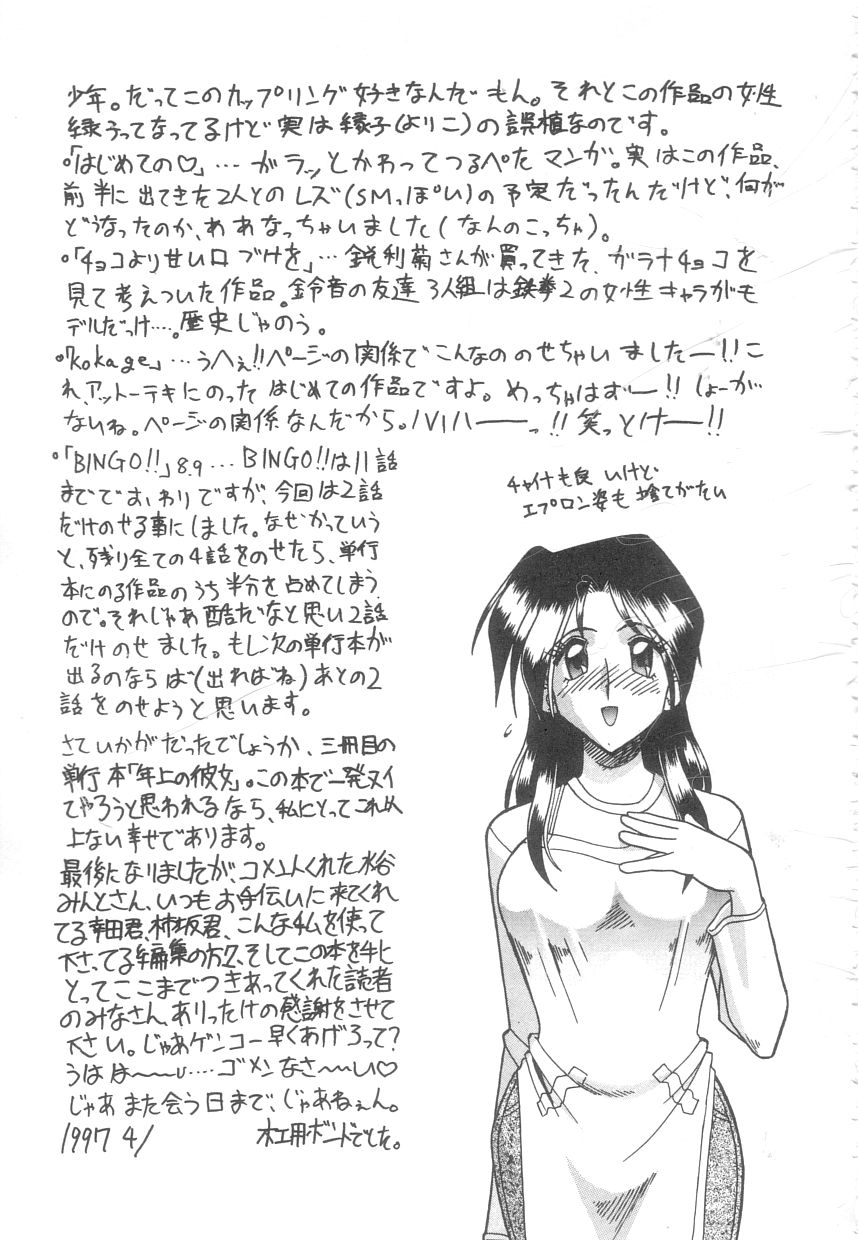 少年。だってこのカップリング好きなんだもん。それとこの作品の女性
縁うってなってるけど実は縁子(よりこ)の誤植なのです。
・「はじめての♡」…ガラッとかわってつるぺたマンガ。実はこの作品、
前半に出てきた2人とのレズ(SMっぽい)の予定だったんだけど、何が
どうなったのか、ああなっちゃいました(なんのこっちゃ)。
・「チョコより甘い口づけを」…鋭利菊さんが買ってきた、ガラナチョコを
見て考えついた作品。鈴音の友達3人組は鉄拳2の女性キャラがモ
デルだっけ….。歴史じゃのう。
・「kokage」…うへぇ!!ページの関係でこんなののせちゃいましたー!!こ
れ、アットーテキにのったはじめての作品ですよ。めっちゃはずー!!しょーが
ないね。ページの関係なんだから。ハハハーーっ!!笑っとけー!!
・「BINGO!!」8.9…BINGO!!は11話
までで おわりですが、今回は2話
だけのせる事にしました。なぜかっていう
と、残り全ての4話をのせたら、単行
本にのる作品のうち半分を占めてしまう
ので。それじゃあ酷だなと思い2話
だけのせました。もし次の単行本が
出るのならば(出ればね)あとの2
話をのせようと思います。
さていかがだったでしょうか、三冊目の
単行本「年上の彼女」。この本で一発ヌイ
てやろうと思われるなら、私にとってこれ以
上ない幸せであります。
最後になりましたが、コメント入れた水谷
みんとさん、いつもお手伝いに来てくれ
てる幸田君、柿坂君、こんな私を使って
下さってる編集の方々、そしてこの本を手に
とってここまでつきあってくれた読者
のみなさん、ありったけの感謝をさせて
下さい。じゃあゲンコー早くあげろって?
うはは〜〜〜…ゴメンなさ〜〜い♡
じゃあまた会う日まで、じゃあねぇん。
1997 4/ 木工用ボンドでした。
チャイナも良いけど
エプロン姿も捨てがたい